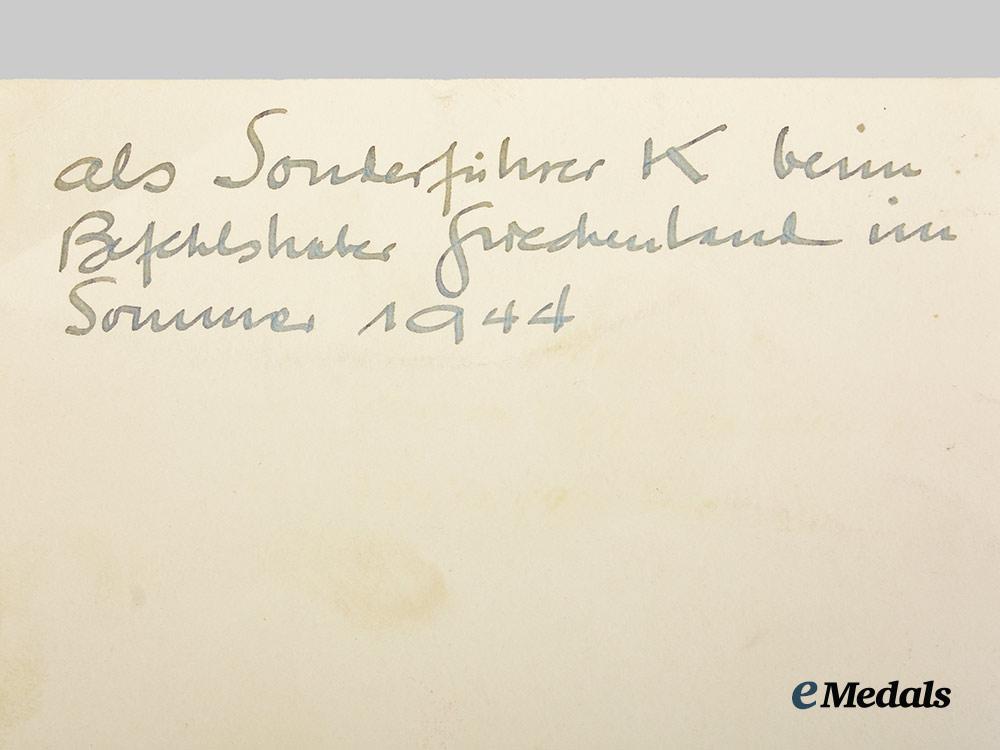 als Sonderführer K beim
Befehlshaber Griechenland im
Sommer 1944
eMedals